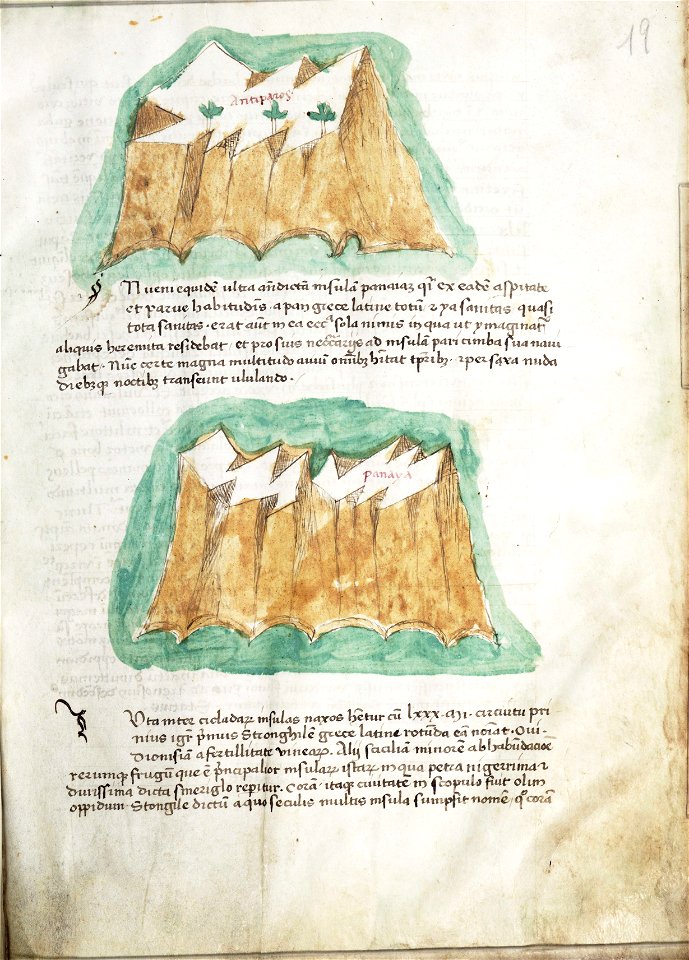 19
Antiparos
Nveni equidē ultra añdictū insulā panaiaz q̄ ex eadē aspitate
et parve habitudīs · a pan grece latine totū · 7 ya sanitas quasi
tota sanitas · erat aut̄ in ea ecc̄ sola nimis in qua ut ymaginat̄
aliquis heremita residebat · et pro suis necc̄ariis ad insulā pari cimba sua navi
gabat · Nūc certe magna multitudo avium om̄ībz hītat tp̄ribz · 7 per saxa nuda
diebzq̄ noctibz transeunt ululando ·
panaya
Uta inter cicladaꝝ insulas naxos hētur cū lxxx · m̄ · circuitu pri
nius igr̄ p̄mus Stronghilē grece latine rotūda eā noīat · Oui
Dionisiā a fertillitate vineaꝝ · Alii siciliā minorē ab habūdācioē
rerumqꝫ frugūm que ē p̄ncipalior insulaꝝ istaꝝ in qua petra nigerrima 7
durissima dicta smeriglo repitur · Corā itaqꝫ civitatē in scopulo fuit olim
oppidum Stongile dictū a quo seculis multis insula sumpsit nomē · q̄ corā